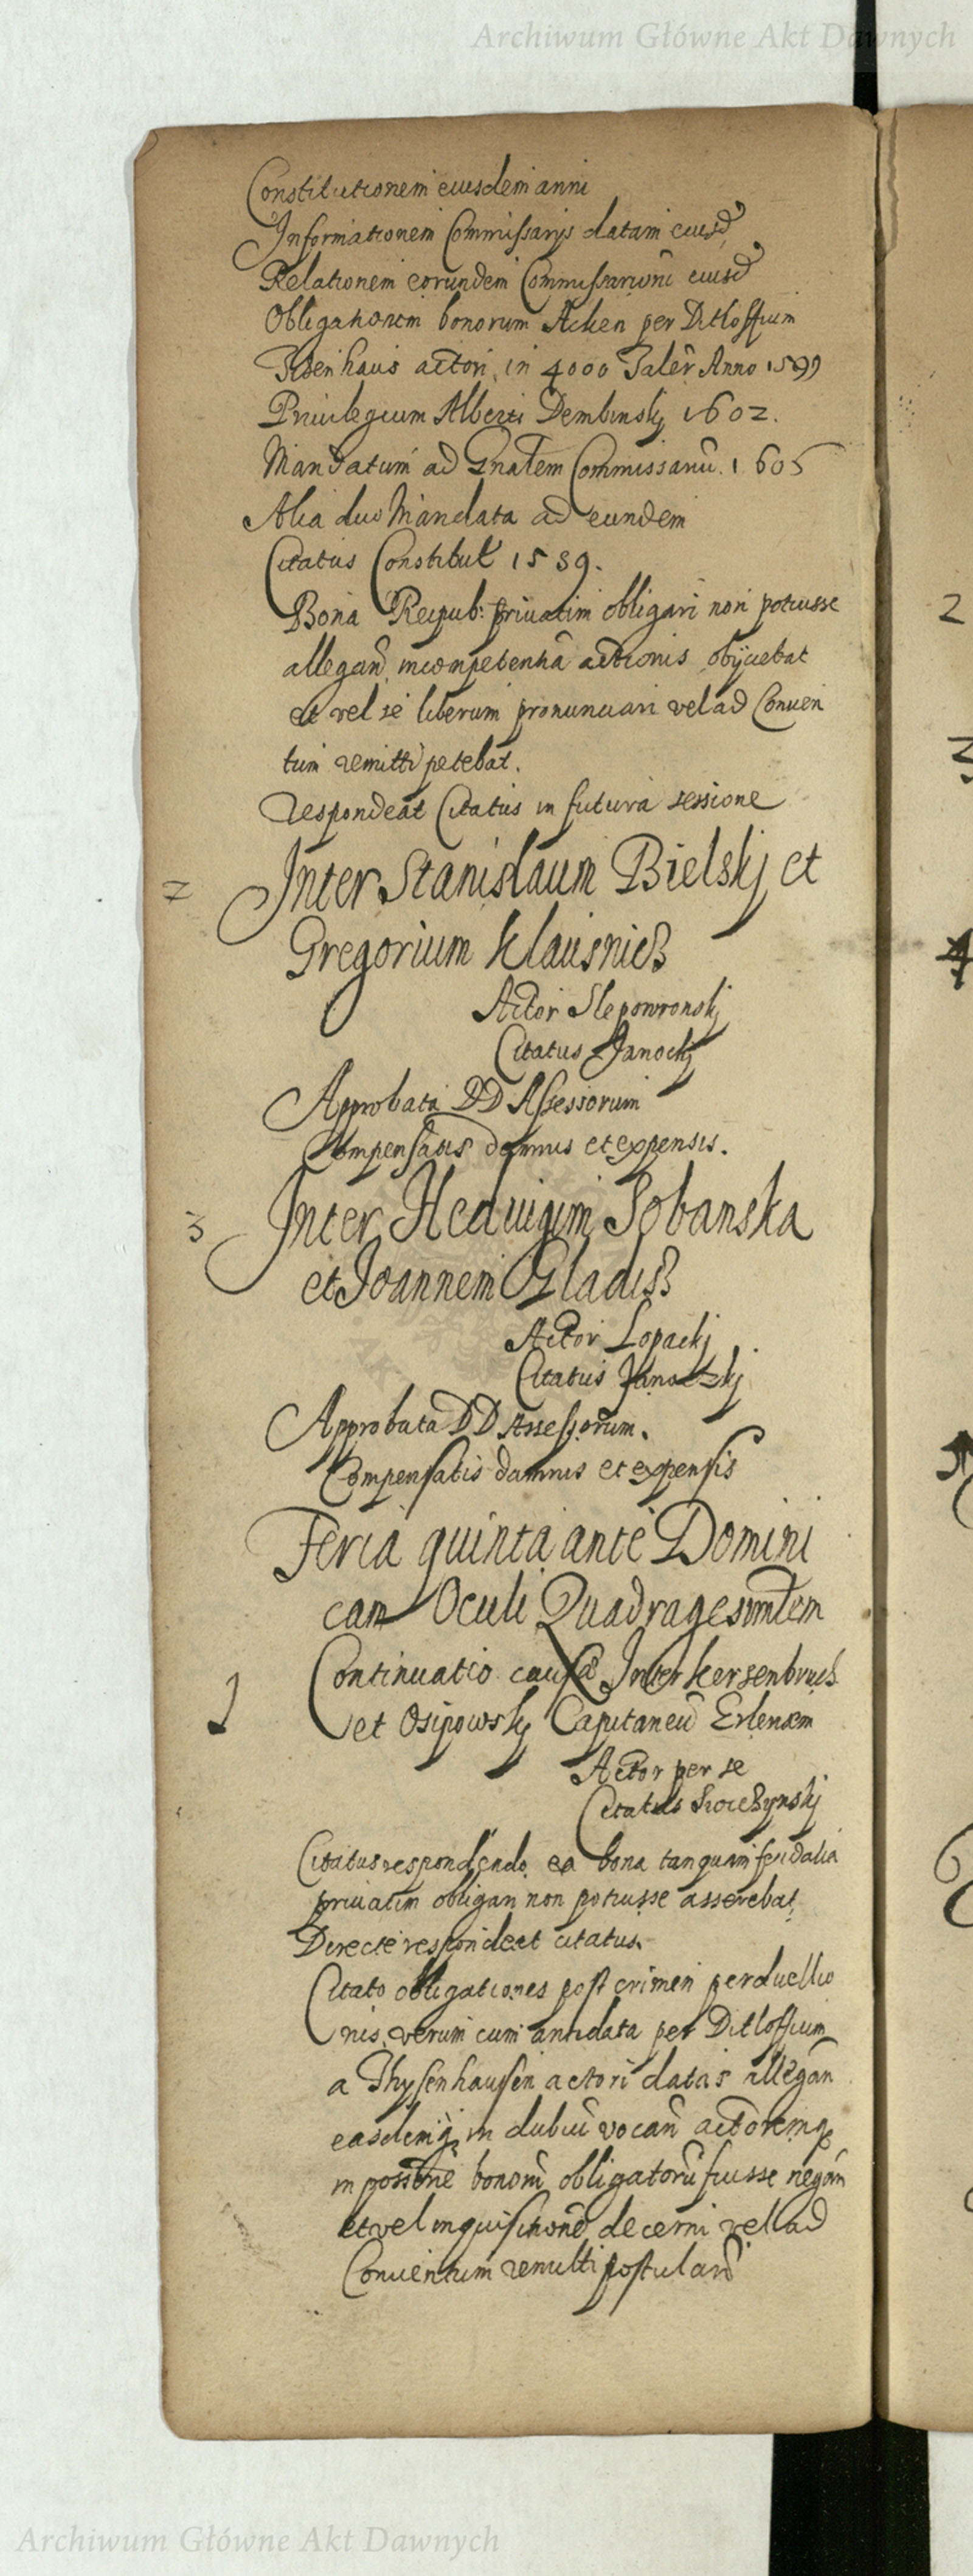 Archiwum Główne Akt Dawnych
Constitutionem eiusdem anni
Informationem Commissarijs datam eiusd
Relationem eorundem Commissariorū eiusd
Obligationem bonorum Acken per Ditloffium
Tisenhaus actori in 4000 Taler Anno 1599
Priuilegium Alberti Dembinskj 1602.
Mandatum ad Gnalem Commissariū. 1605
Alia duo Mandata ad eundem
Citatus Constitut 1589.
Bona Reipub: priuatim obligari non potuisse
allegan̄ incompetentiā actionis obijciebat
et vel se liberum pronunciari vel ad Conuen
tum remitti petebat.
Respondeat Citatus in futura sessione
2 Inter Stanislaum Bielskj et
Gregorium Klausnicz
Actor Slepowronskj
Citatus Janockj
Approbata DD Assessorum
Compensatis damnis et expensis.
3 Inter Heduigim Sobanska
et Joannem Gladisz
Actor Lopackj
Citatus Janoczkj
Approbata DD Assessorum.
Compensatis damnis et expensis
Feria quinta ante Domini
cam Oculi Quadragesimalem
1 Continuatio causæ Inter Kersenbruch
et Osipowskj Capitaneū Erlensem
Actor per se
Citatus
Citatus respondendo ea bona tanquam feudalia
priuatim obligari non potuisse asserebat.
Directe respondeat citatus.
Citato obligationes post crimen perduellio
nis verum cum antidata per Ditloffium
a Thysenhausen actori datas allegan̄
easdemq in dubiū vocan̄ actoremq
in possione bonorū obligatorū fuisse negan̄
et vel inquisitionē decerni vel ad
Conuentum remitti postulan̄
2
3
4
Archiwum Główne Akt Dawnych